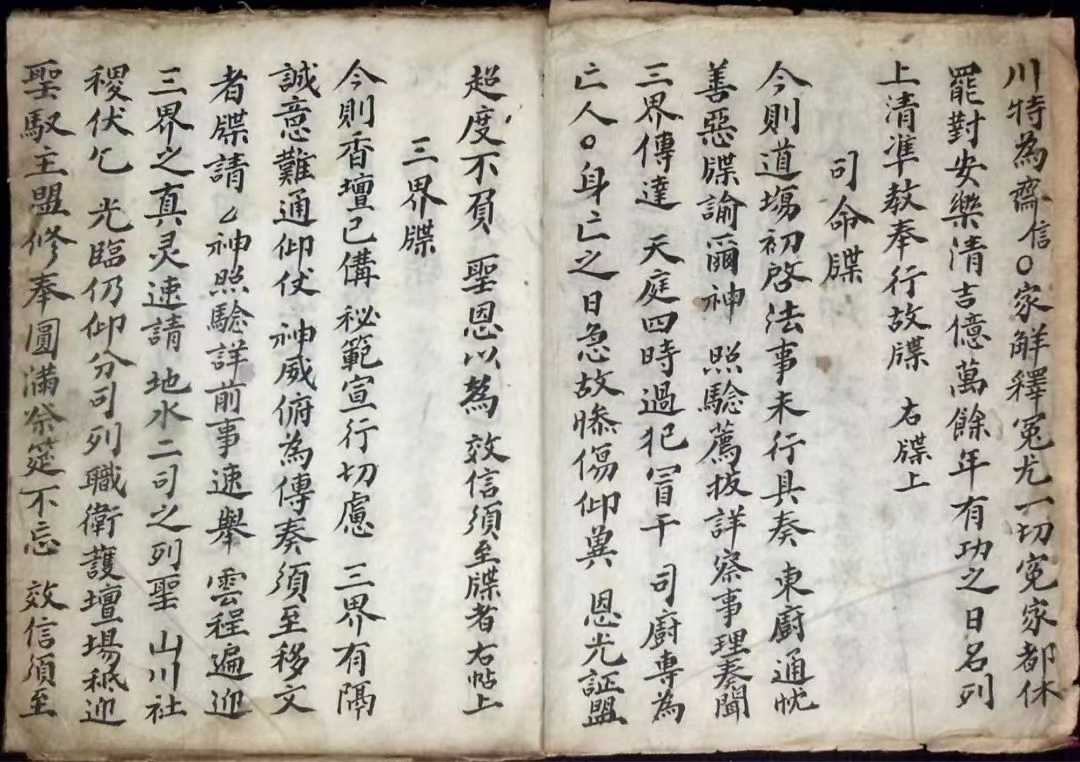 川特為齋信〇家解釋冤尤一切冤家都休
罷對安樂清吉億萬餘年有功之日名列
上清準教奉行故牒 右牒上
司命牒
今則道塲初啓法事未行具奏 東廚通忱
善惡牒諭爾神 照驗薦拔詳察事理奏聞
三界傳達 天庭四時過犯冒干 司廚專為
亡人〇身亡之日急故慘傷仰冀 恩光証盟
超度不負 聖恩以為 效信須至牒者右帖上
三界牒
今則香壇已備 秘範宣行切慮 三界有隔
誠意難通仰仗 神威俯為傳奏須至移文
者牒請乙神照驗詳前事速舉 雲程遍迎
三界之真灵速請 地水二司之列聖 山川社
稷伏乞 光臨仍仰分司列職衛護壇場祗迎
聖馭主盟修奉圓滿祭筵不忘 效信須至